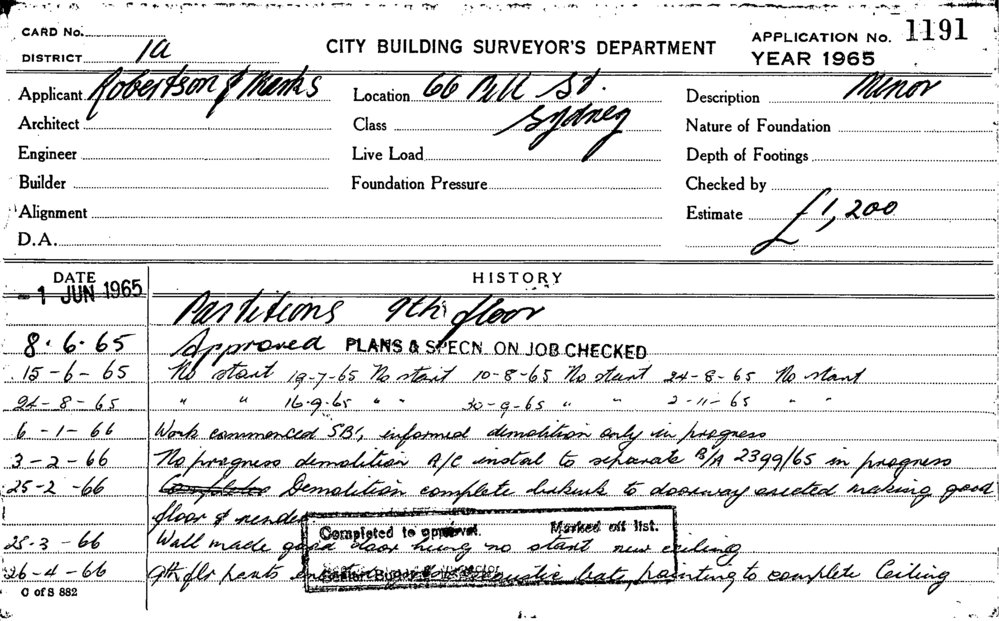 CARD No.
DISTRICT 1a
CITY BUILDING SURVEYOR'S DEPARTMENT
APPLICATION No. 1191
YEAR 1965
Applicant Robertson & Marks
Location 66 Pitt St. Sydney
Description Minor
Architect
Class
Nature of Foundation
Engineer
Live Load
Depth of Footings
Builder
Foundation Pressure
Checked by
Alignment
Estimate £1,200
D.A.
DATE
HISTORY
- 1 JUN 1965 Partitions 9th floor
8.6.65 Approved PLANS & SPECN. ON JOB CHECKED
15-6-65 No start 19-7-65 No start 10-8-65 No start 24-8-65 No start
24-8-65 " " 16-9-65 " " 30-9-65 " " 2-11-65 " "
6-1-66 Work commenced SB1, informed demolition only in progress
3-2-66 No progress demolition A/C instal to separate B/A 2399/65 in progress
25-2-66 Completed Demolition complete to doorway erected making good
floor & render
25-3-66 Wall made good door hung no start new ceiling
26-4-66 9th flr painting to complete Ceiling
Completed to approval. Marked off list.
C of S 882